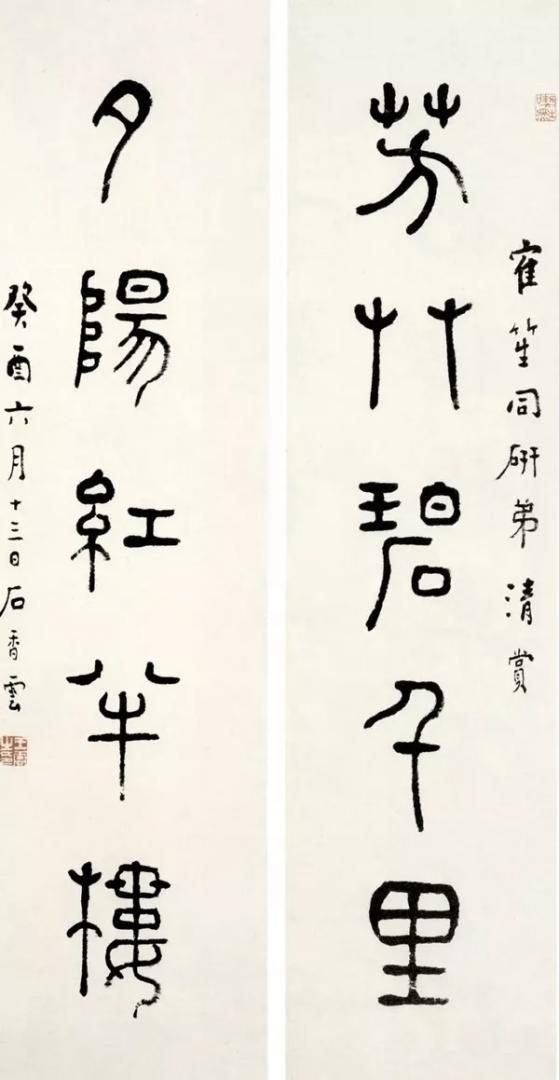 寉笙同硏弟清賞
芳艸碧千里
夕陽紅半樓
癸酉六月十三日石香雲